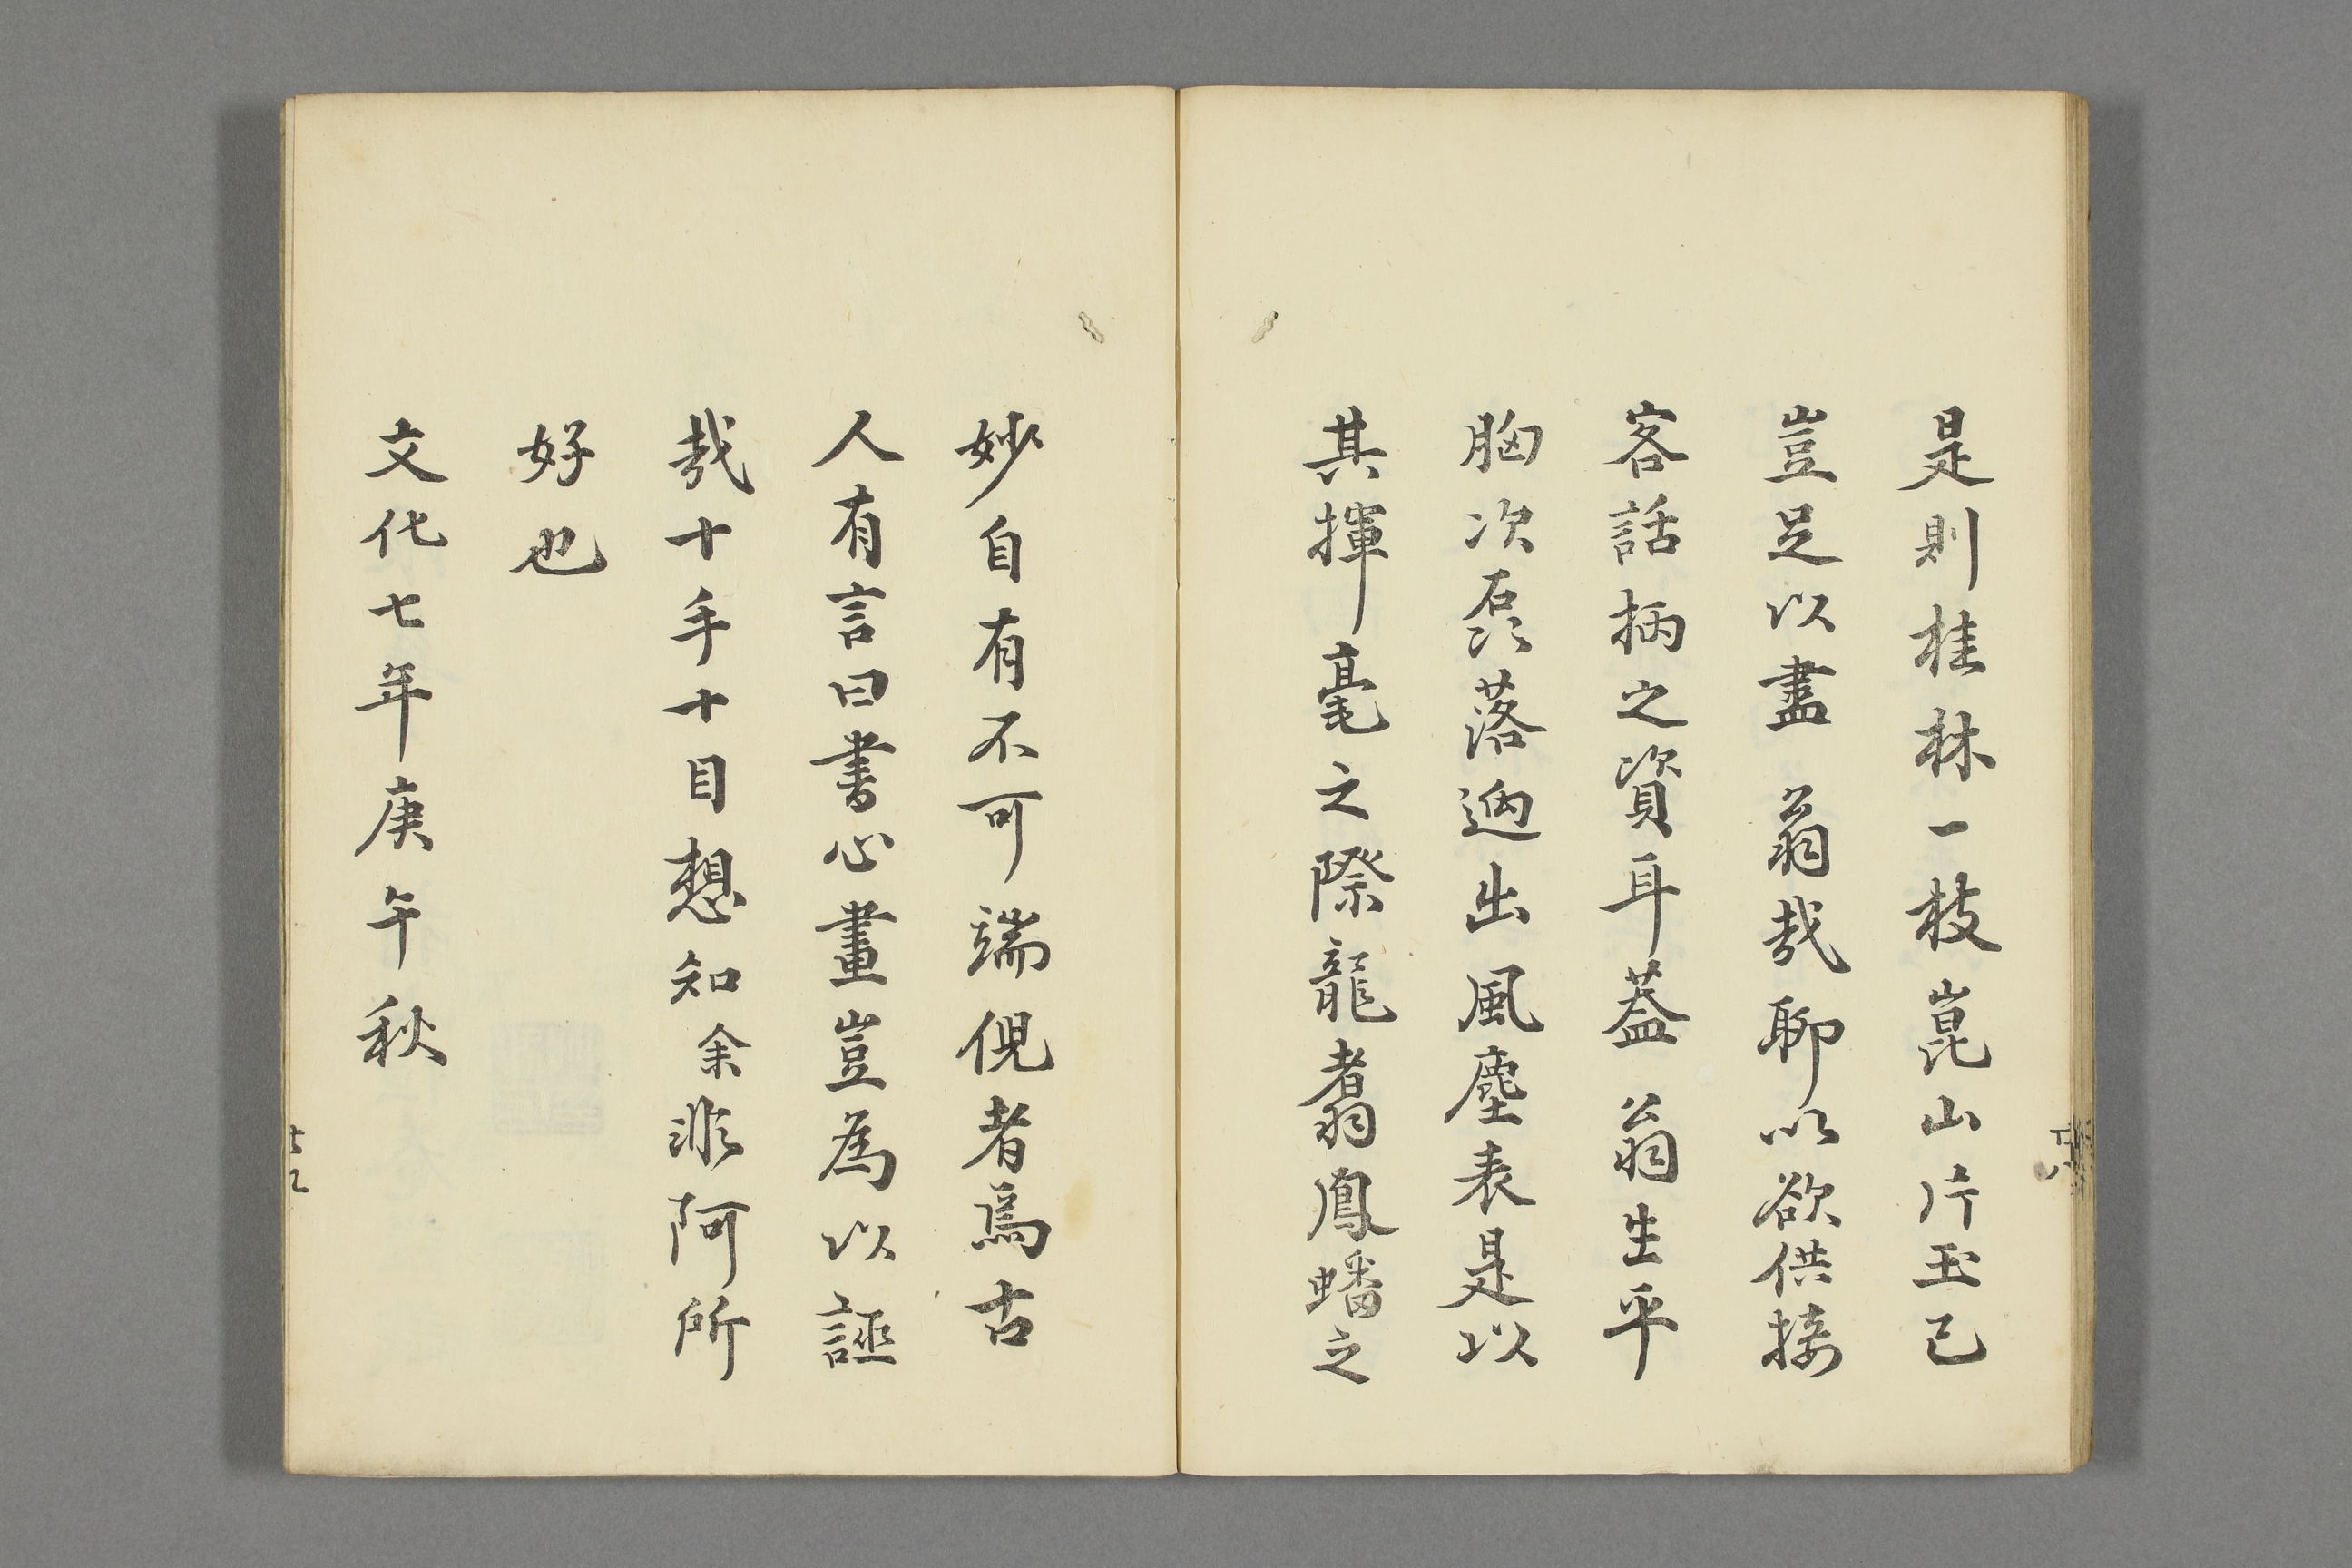 是則桂林一枝崑山片玉已
豈足以盡 翁哉聊以欲供接
客話柄之資耳蓋 翁生平
胸次磊落逈出風塵表是以
其揮毫之際龍翥鳳蟠之
妙自有不可端倪者焉古
人有言曰書心畫豈為以誣
哉十手十目想知余非阿所
好也
文化七年庚午秋